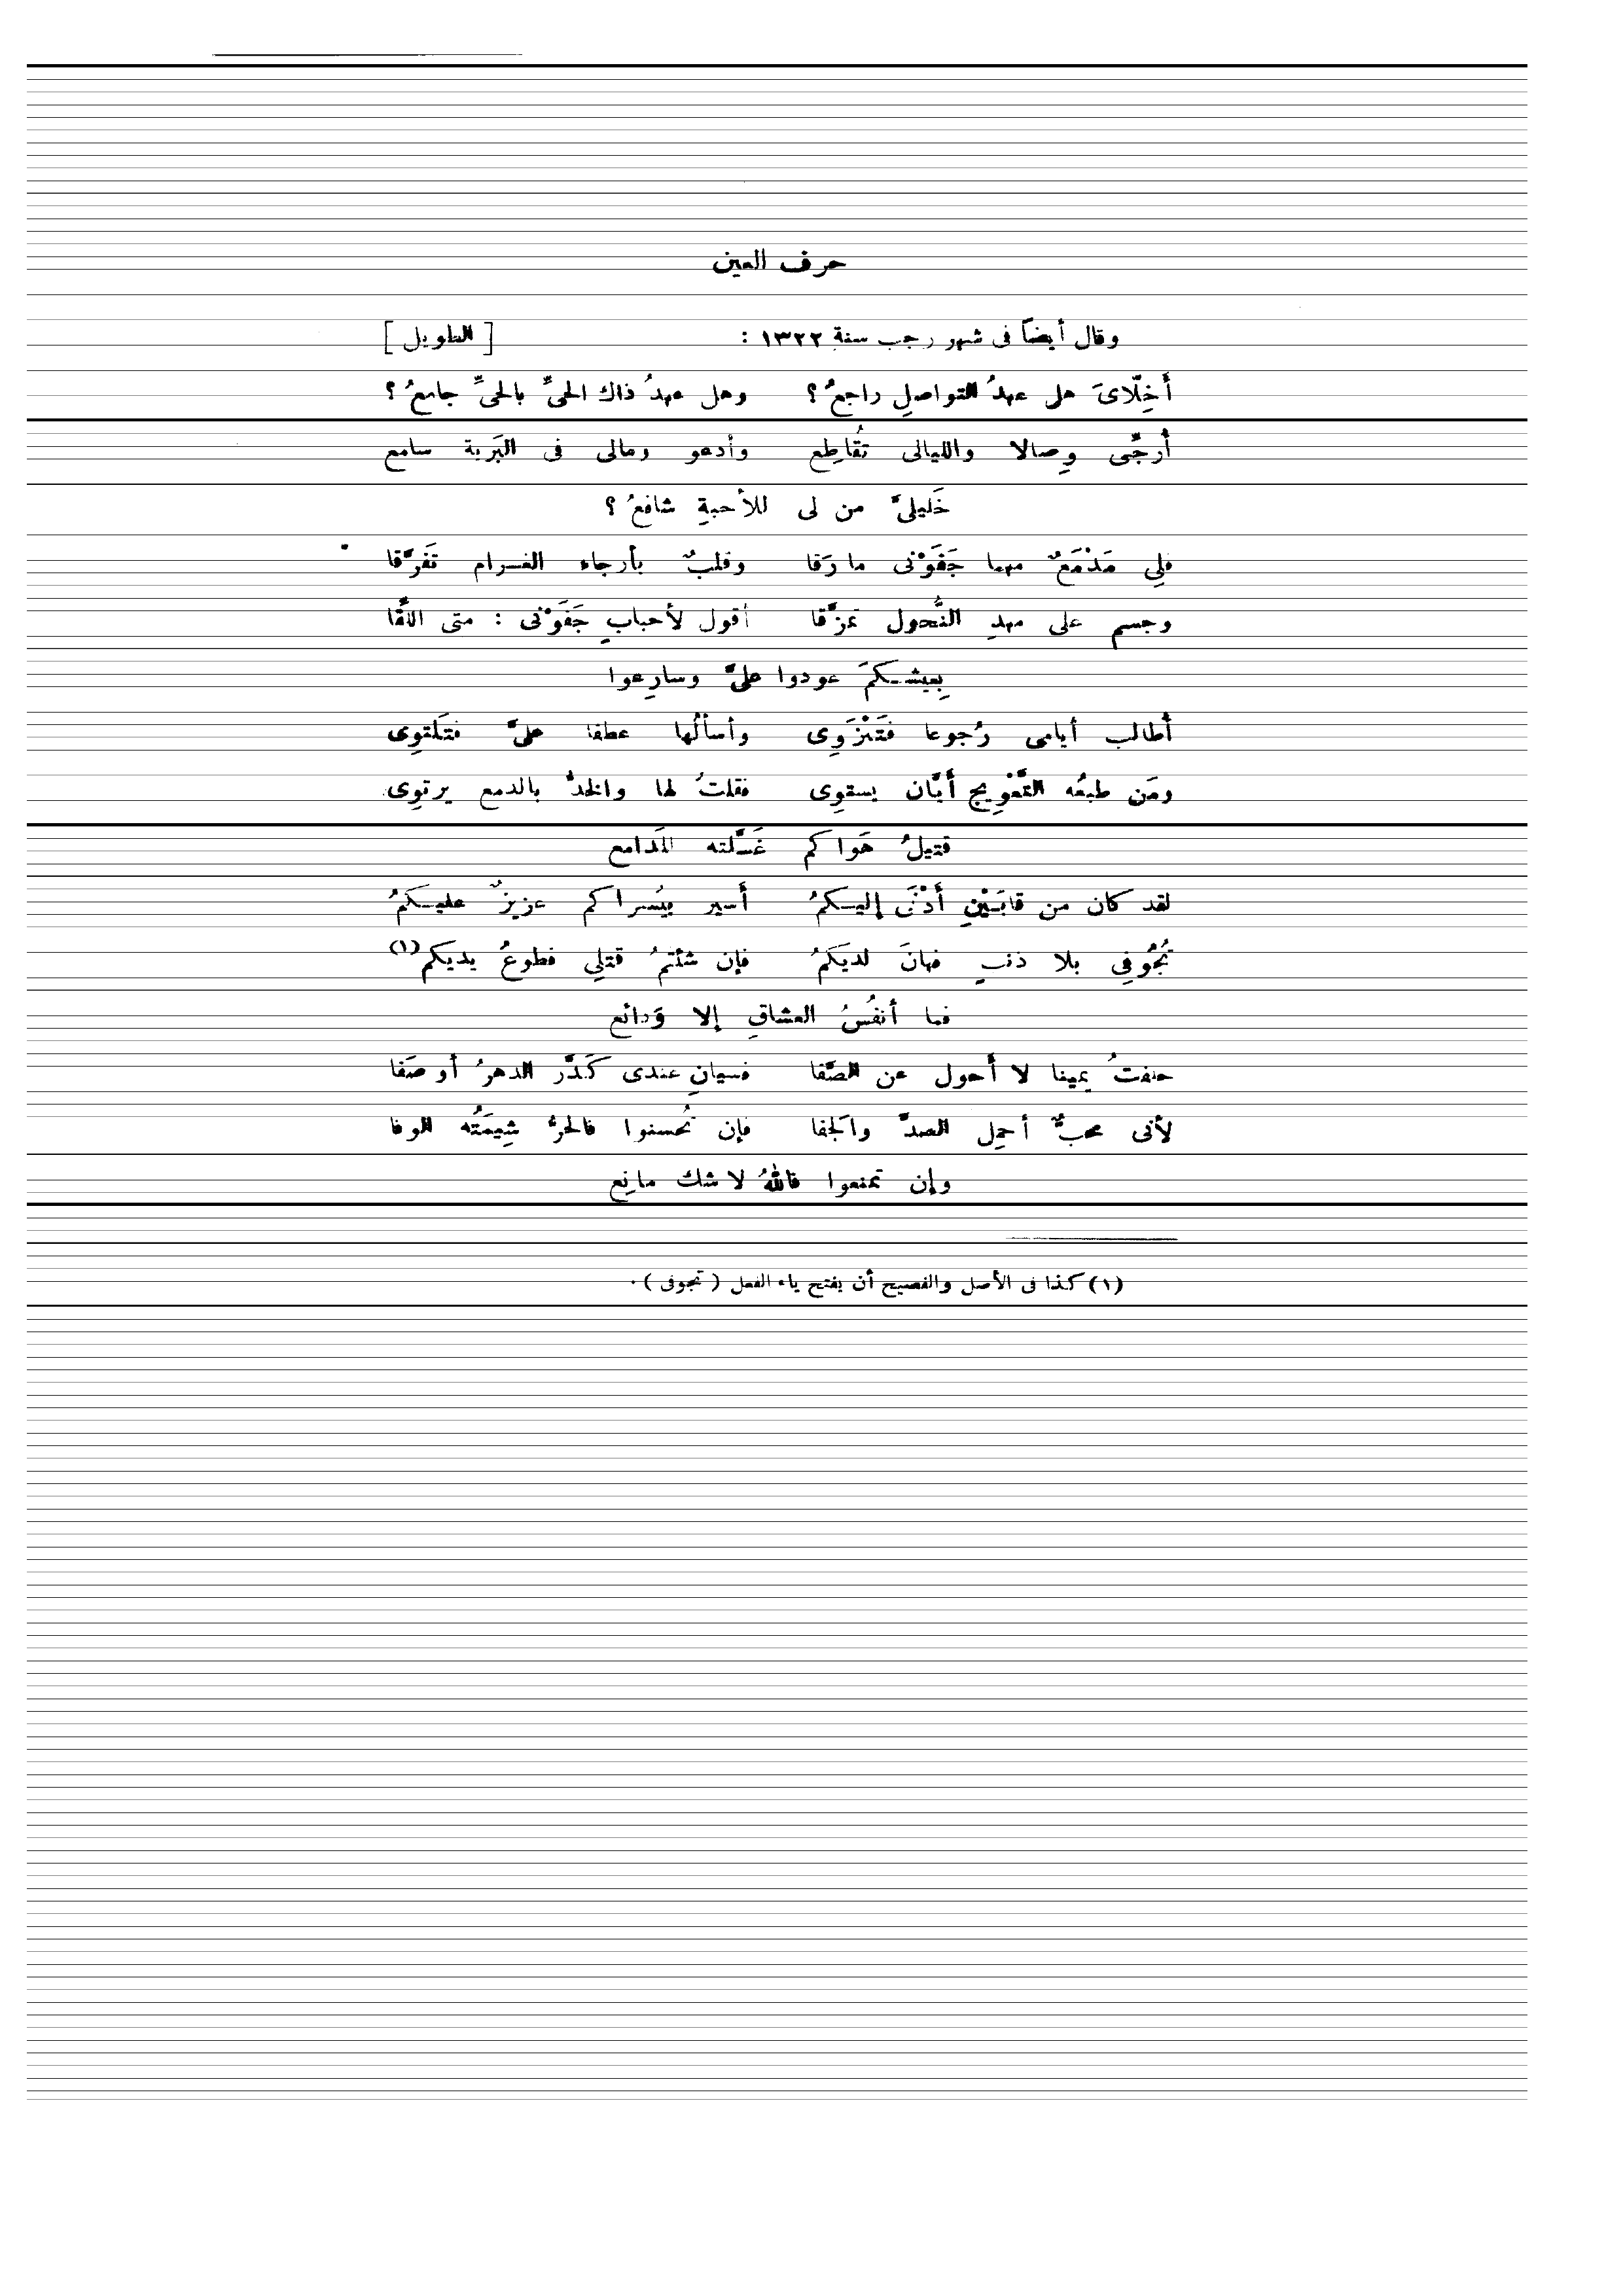 حرف العين
وقال أيضاً فى شهر رجب سنة ١٣٢٢ : [ الطويل ]
أَخِلّاىَ هل عهدُ التواصلِ راجعُ ؟ وهل عهدُ ذاك الحىِّ بالحىِّ جامعُ ؟
أُرجِّى وِصالا والليالى تُقاطِع وأدعو ومالى فى البَرية سامع
خَليلىَّ من لى للأحبةِ شافعُ ؟
فلِى مَدْمَعٌ مهما جَفَوْنى ما رَقا وقلبٌ بأرجاء الغرام تَفرَّقا
وجسم على مهدِ النُّحول تمزَّقا أقول لأحبابٍ جَفَوْنى : متى اللِّقَا
بِعيشكمَ عودوا علىَّ وسارِعوا
أُطالب أيامى رُجوعا فتَنْزَوِى وأسألُها عطفا علىَّ فتَلتوِى
ومَن طبعُه التَّعْويج أَيَّان يستوِى فقلتُ لها والخدُّ بالدمع يرتوِى
قتيلُ هَواكم غَسَّلته المَدامع
لقد كان من قابَيْنِ أَدْنَى إليكمُ أسير بيُسراكم عزيزٌ عليكمُ
تُجُوفِى بلا ذنبٍ فهانَ لديَكمُ فإن شئتمُ قتلِى فطوعُ يديكم(١)
فما أنفُسُ العشاقِ إلا وَدائع
حلفتُ يمينا لا أَحول عن الصَّفا فسيانِ عندى كَدَّر الدهرُ أو صَفا
لأنى محبٌّ أحمِل الصدَّ والَجفا فإن تُحسنوا فالحرُّ شِيمَتُه الوفا
وإن تمنعوا فاللهُ لا شك مانِع
(١) كذا فى الأصل والفصيح أن يفتح ياء الفعل ( تجوفى ) .